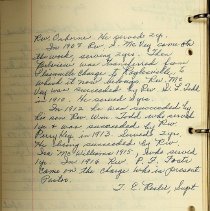 Rev. Osborne. He served 2 yr.
In 1907 Rev. S. McVey came on
the work, serving 2 yrs. Then
was transferred from
Charge to Kaylesville, to
which it now belongs. Rev. Mc
Vey was succeeded by Rev. D. L. Todd
in 1910. He served 2 yrs.
In 1912 he was succeeded by
his son Rev Wm. Todd, who served
1 yr & was succeeded by Rev
Perry Ray in 1913. Served 2 yrs.
He being succeeded by Rev
Ira McWilliams 1915, who served
1 yr. In 1916 Rev. P. F.
came on the charge who is present
Pastor
T. E. Supt